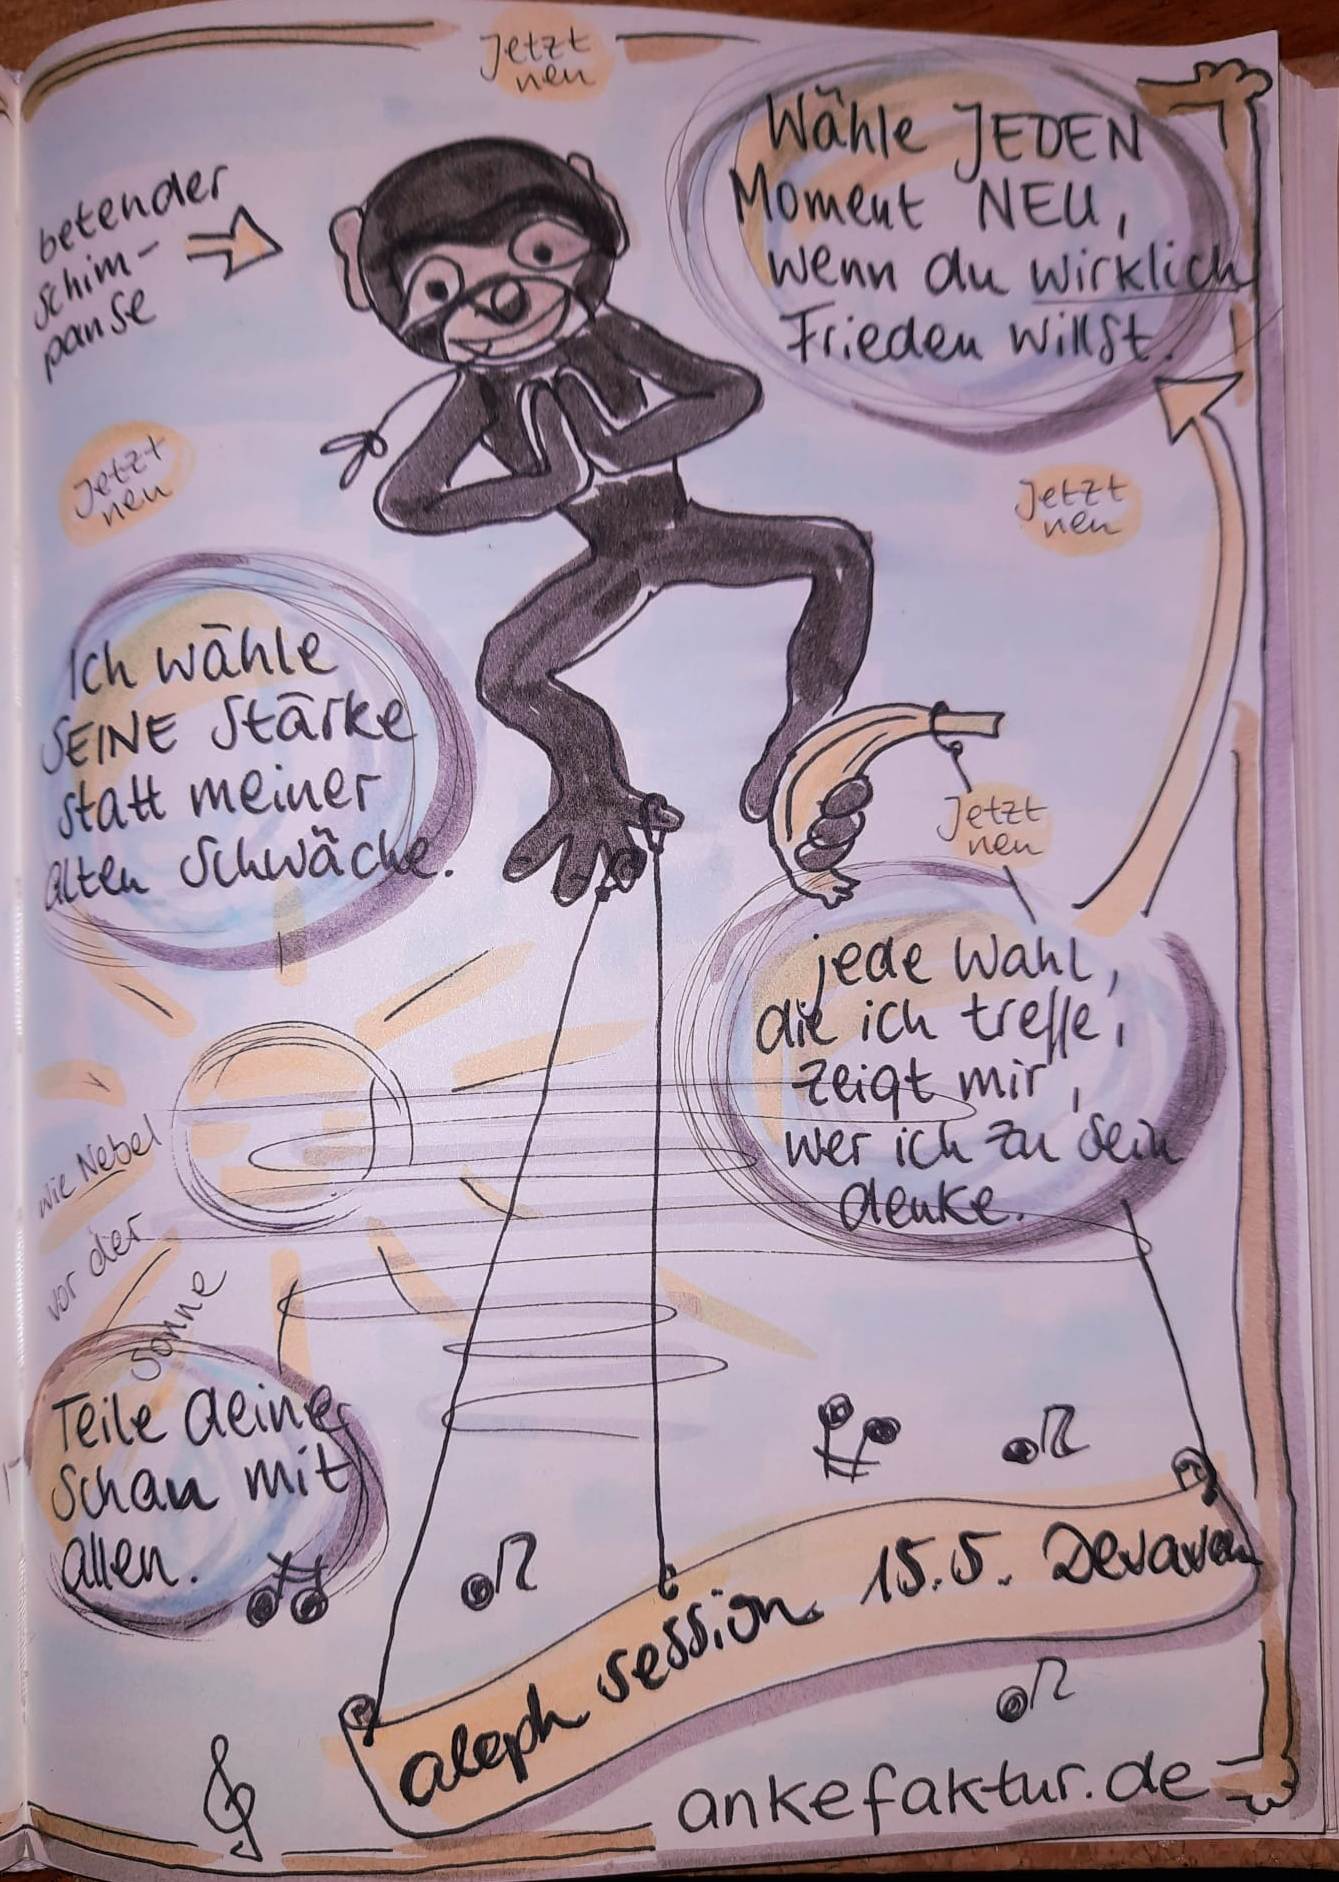 Jetzt
neu
betender
schim-
panse
Wähle JEDEN
Moment NEU,
wenn du wirklich
Frieden willst.
Jetzt
neu
Jetzt
neu
Ich wähle
SEINE Stärke
statt meiner
alten Schwäche.
Jetzt
neu
jede Wahl,
die ich treffe,
zeigt mir,
wer ich zu sein
denke.
wie Nebel
vor der
Sonne
Teile deine
Schau mit
allen.
aleph session 15.5. Devavan
ankefaktur.de